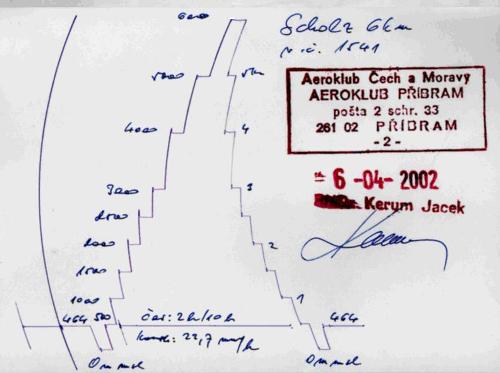 6000
Scholz 6km
v.č. 1541
Aeroklub Čech a Moravy
AEROKLUB PŘÍBRAM
pošta 2 schr. 33
261 02 PŘÍBRAM
-2-
6 -04- 2002
Kerum Jacek
5000
5km
4000
4
3000
3
2500
2000
2
1500
1000
1
464 500
čas: 2h/10h
464
22,7 mm/h
0 mmh
0 mmh